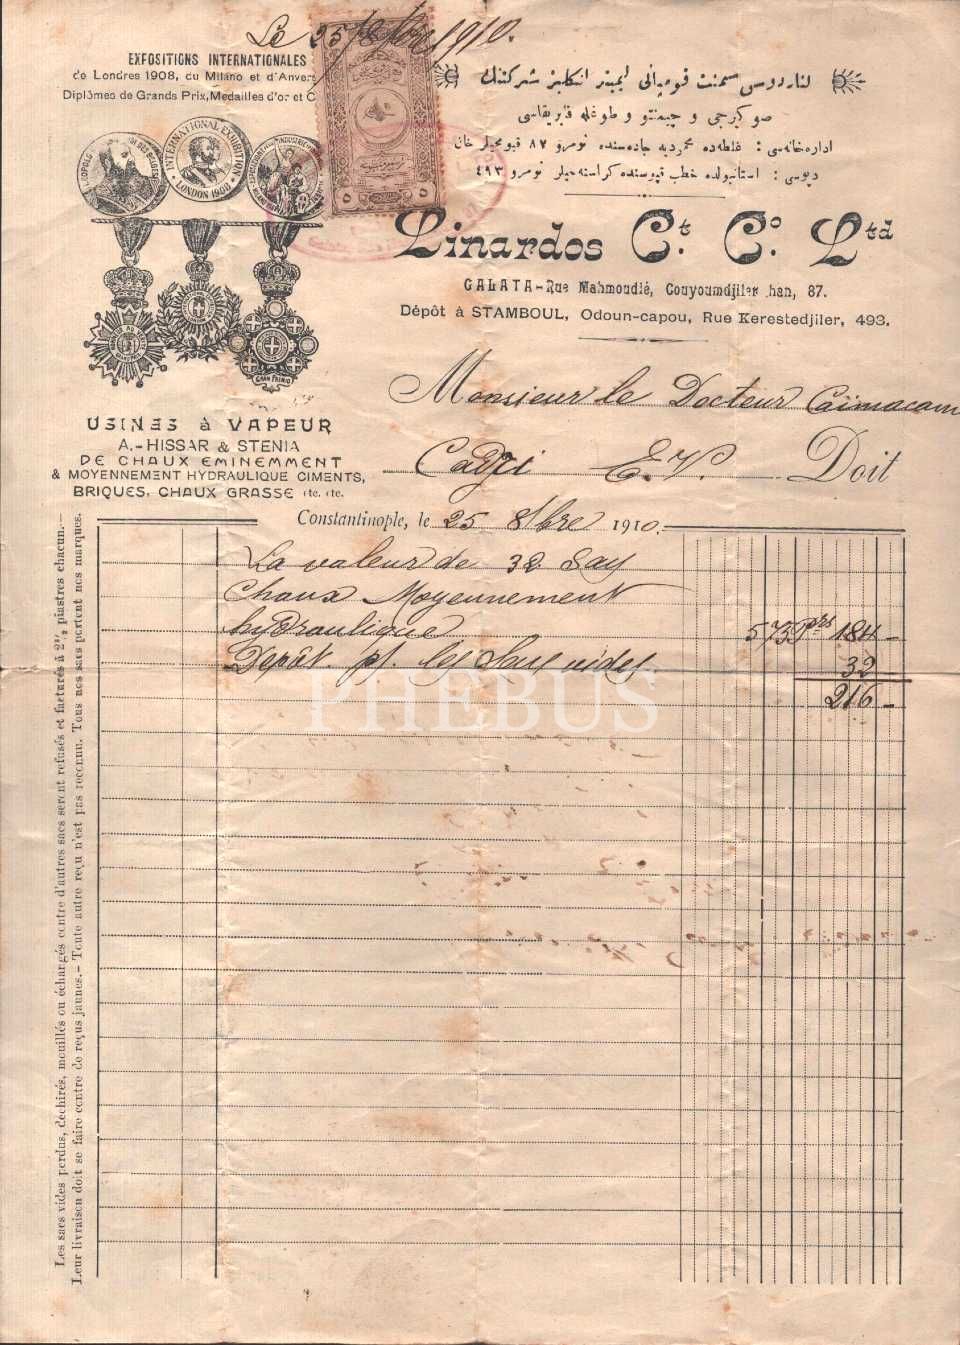 Le 25 1910.
EXPOSITIONS INTERNATIONALES
de Londres 1908, du Milano et d'Anvers
Diplômes de Grands Prix, Medailles d'or et
INTERNATIONAL EXHIBITION
LONDON 1908
GRAN PREMIO
لناردوس سمنت قومپانی لیمیتد انكلیز شركتنك
صو كیرجی و چیمنتو و طوغله فابریقاسی
اداره‌خانه‌سی : غلطه‌ده محمودیه جاده‌سنده نومرو ٨٧ قیومجیلر خان
دپوسی : استانبولده اودون قپوسنده كراسته‌جیلر نومرو ٤٩٣
Linardos Ct. Co. Ltd
GALATA-Rue Mahmoudié, Couyoumdjiler han, 87.
Dépôt à STAMBOUL, Odoun-capou, Rue Kerestedjiler, 493.
USINES à VAPEUR
A.-HISSAR & STENIA
DE CHAUX EMINEMMENT
& MOYENNEMENT HYDRAULIQUE CIMENTS,
BRIQUES, CHAUX GRASSE etc. etc.
Monsieur le Docteur Caïmacam
E.V. Doit
Constantinople, le 25 8bre 1910.
La valeur de 32 Sacs
Chaux Moyennement
hydraulique 5 75 Prs 184 -
Depôt pr. les Sacs vides 32
216 -
PHEBUS
Les sacs vides perdus, dechirés, mouillés ou échangés contre d'autres sacs seront refusés et facturés à 2 1/2 piastres chacun.—
Leur livraison doit se faire contre de reçus jaunes.- Toute autre reçu n'est pas reconnu. Tous nos sacs portent nos marques.